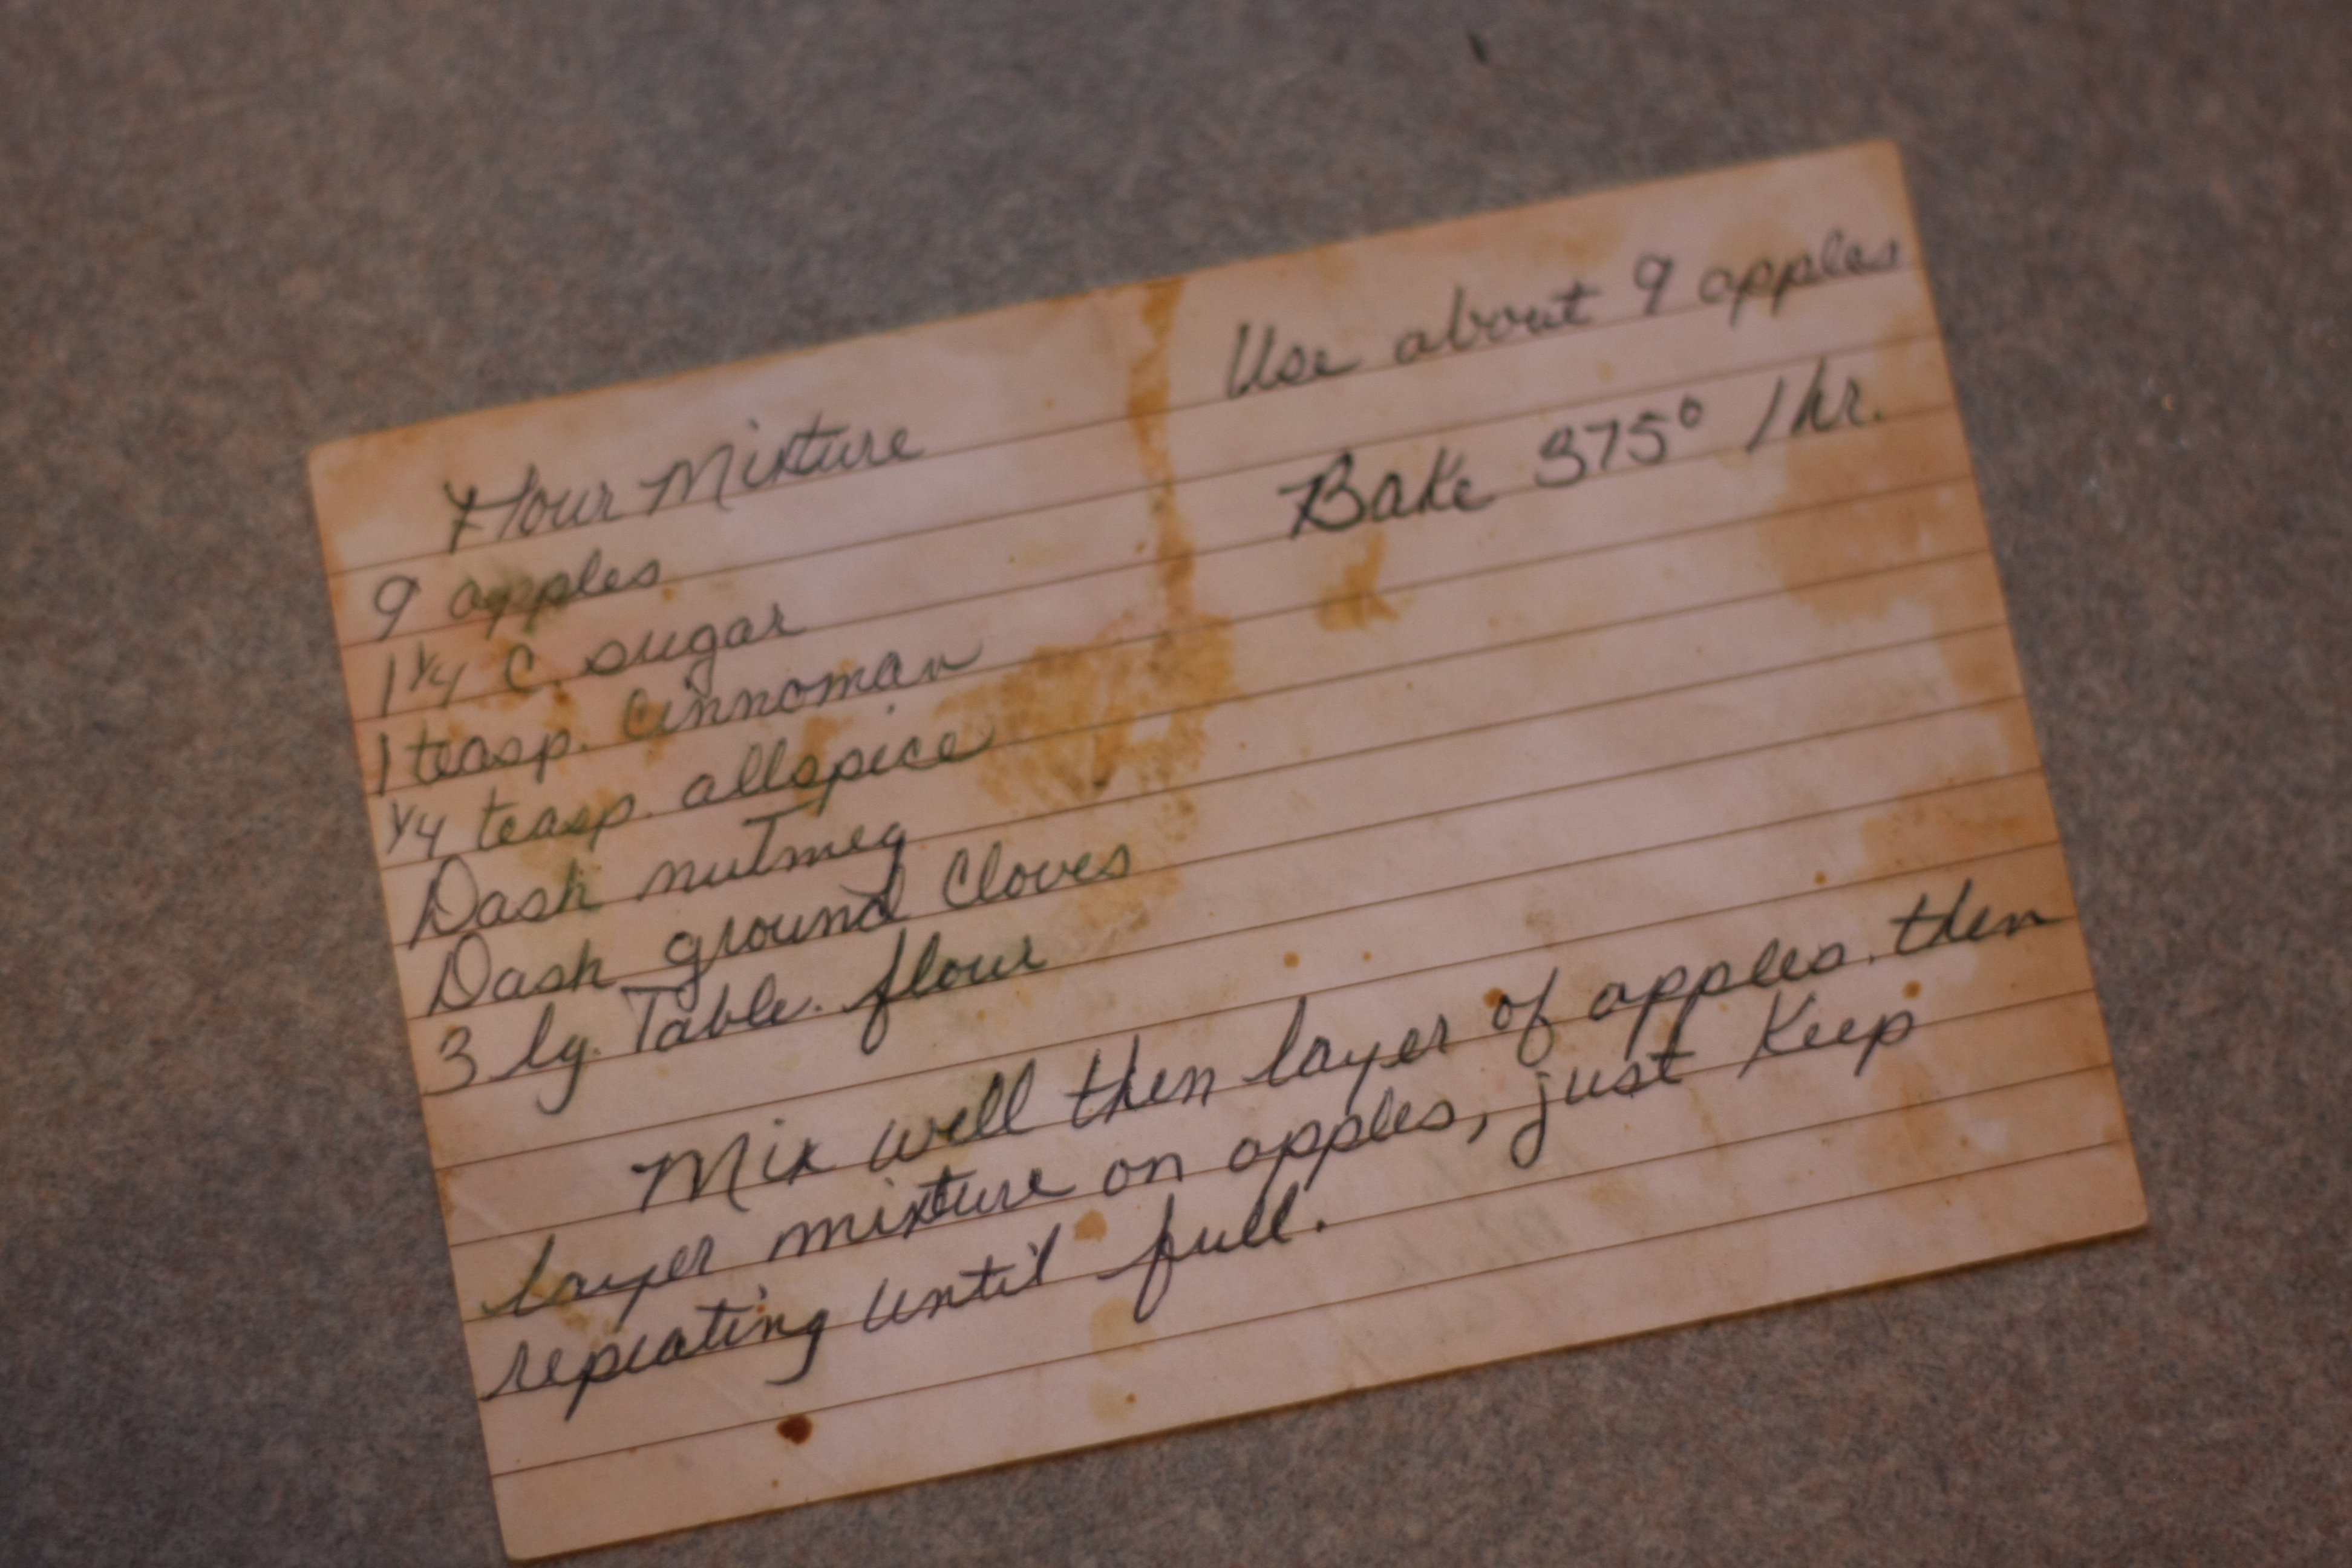 Use about 9 apples
Flour Mixture
Bake 375° 1 hr.
9 apples
1 1/4 C. sugar
1 teasp. Cinnoman
1/4 teasp. allspice
Dash nutmeg
Dash ground Cloves
3 lg. Table. flour
Mix well then layer of apples. then
layer mixture on apples, just Keep
repeating until full.